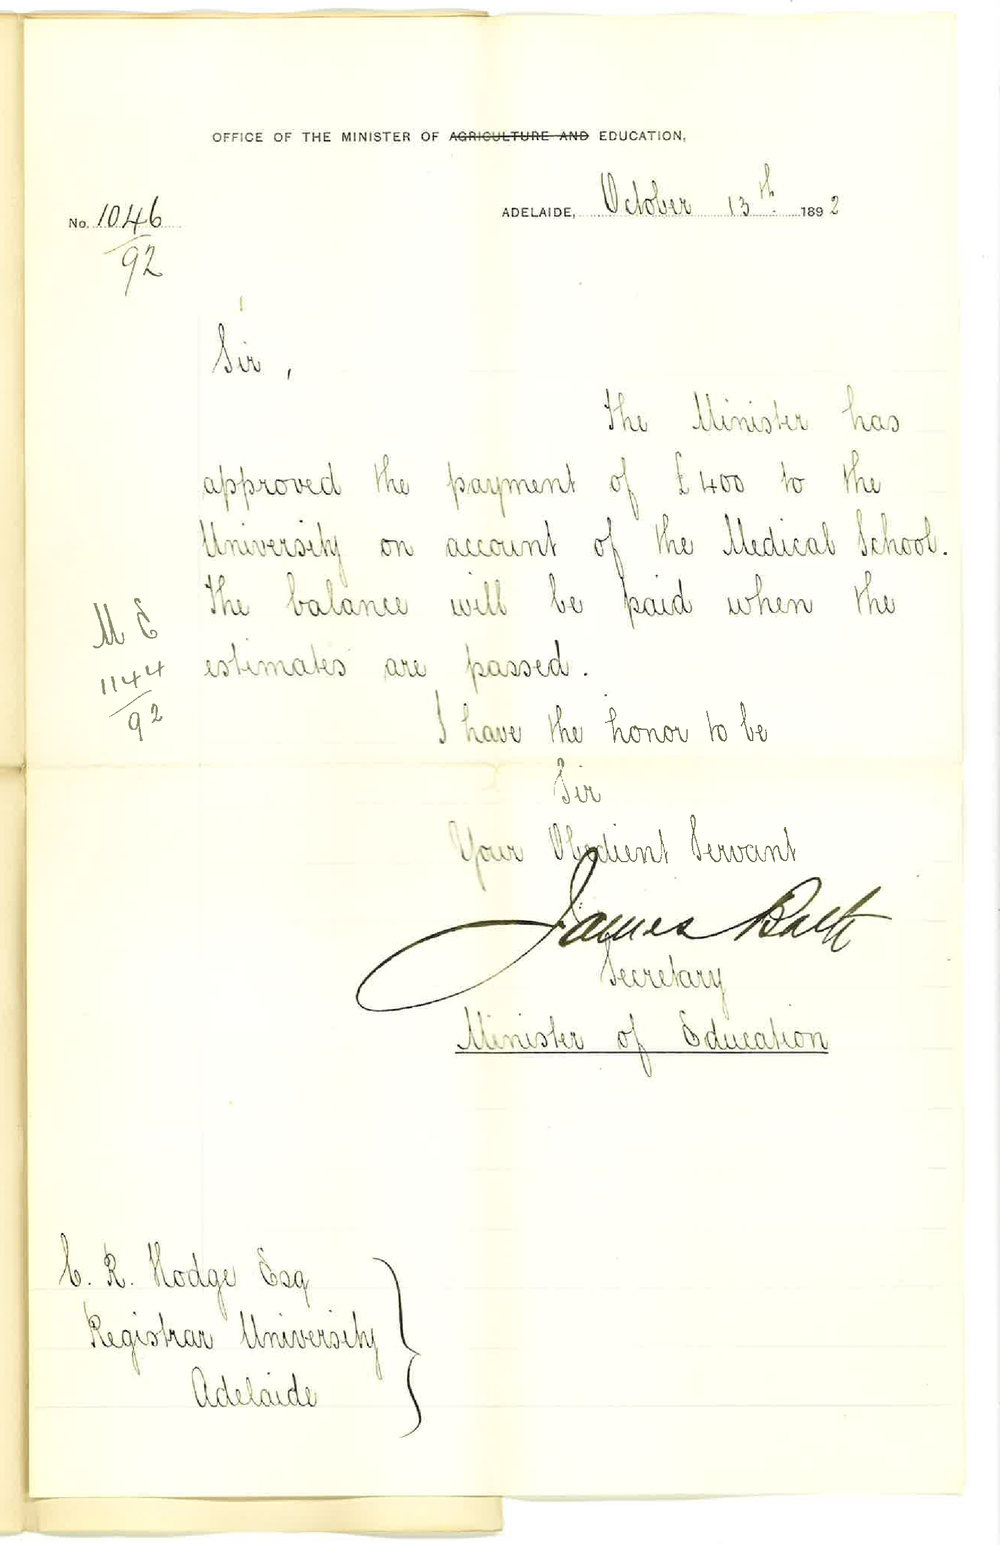 OFFICE OF THE MINISTER OF AGRICULTURE AND EDUCATION,
No. 1046
92
ADELAIDE, October 13th 1892
Sir,
The Minister has
approved the payment of £400 to the
University on account of the Medical School.
The balance will be paid when the
estimates are passed.
M E
1144
92
I have the honor to be
Sir
Your Obedient Servant
James Bath
Secretary
Minister of Education
C. R. Hodge Esq
Registrar University
Adelaide